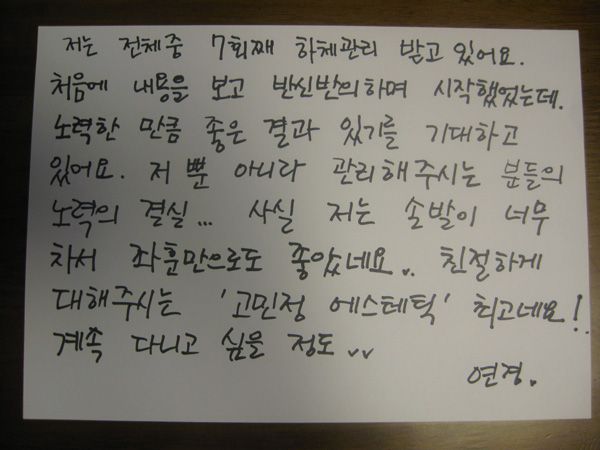 저는 전체중 7회째 하체관리 받고있어요.
처음에 내용을 보고 반신반의하며 시작했었는데.
노력한 만큼 좋은 결과 있기를 기대하고
있어요. 저 뿐 아니라 관리해주시는 분들의
노력의 결실... 사실 저는 손발이 너무
차서 좌훈만으로도 좋았네요.. 친절하게
대해주시는 '고민정 에스테틱' 최고네요!
계속 다니고 싶을 정도 ᵥᵥ
연경.